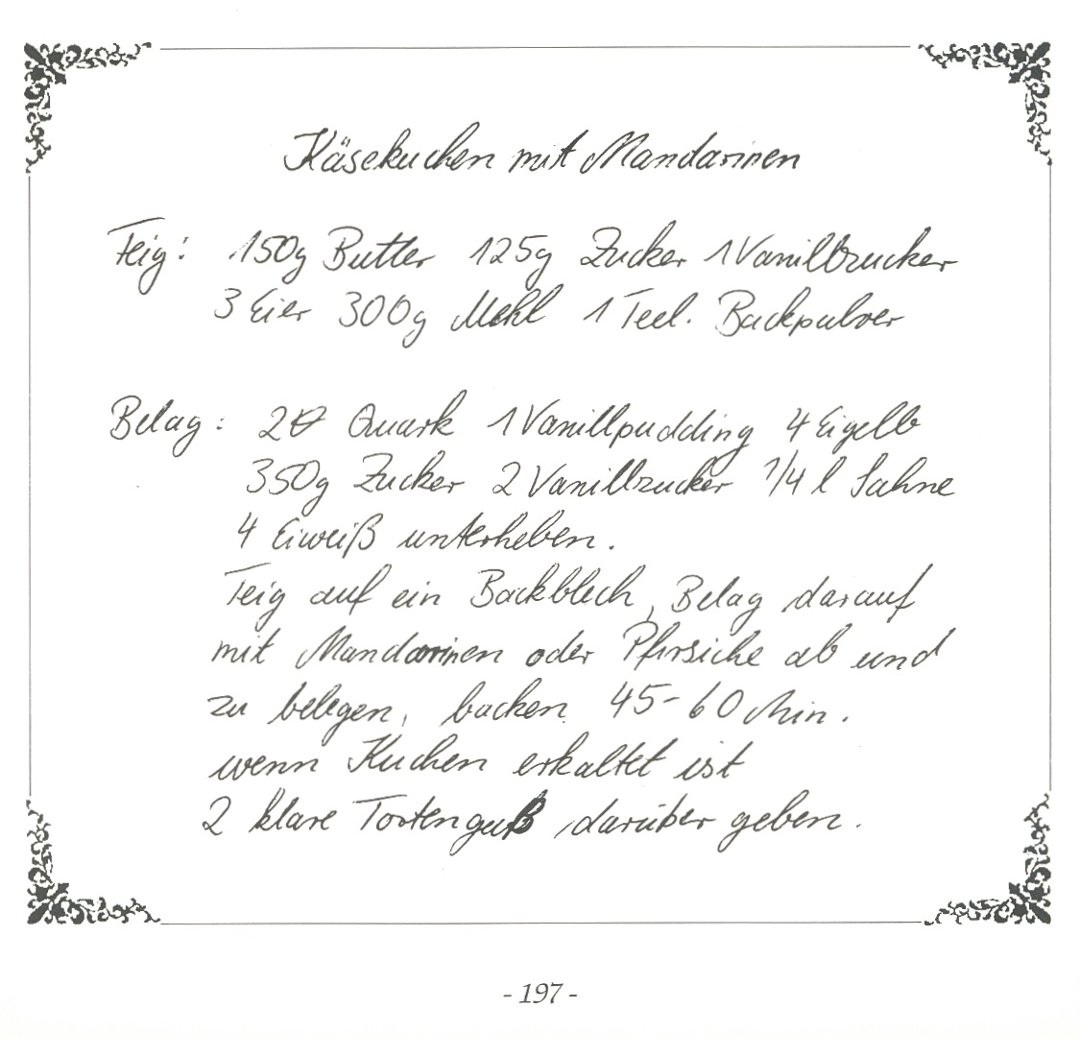 Käsekuchen mit Mandarinen
Teig: 150g Butter 125g Zucker 1 Vanillzucker
3 Eier 300g Mehl 1 Teel. Backpulver
Belag: 2 Quark 1 Vanillpudding 4 Eigelb
350g Zucker 2 Vanillzucker 1/4 l Sahne
4 Eiweiß unterheben.
Teig auf ein Backblech, Belag darauf
mit Mandarinen oder Pfirsiche ab und
zu belegen, backen 45-60 Min.
wenn Kuchen erkaltet ist
2 klare Tortenguß darüber geben.
- 197 -